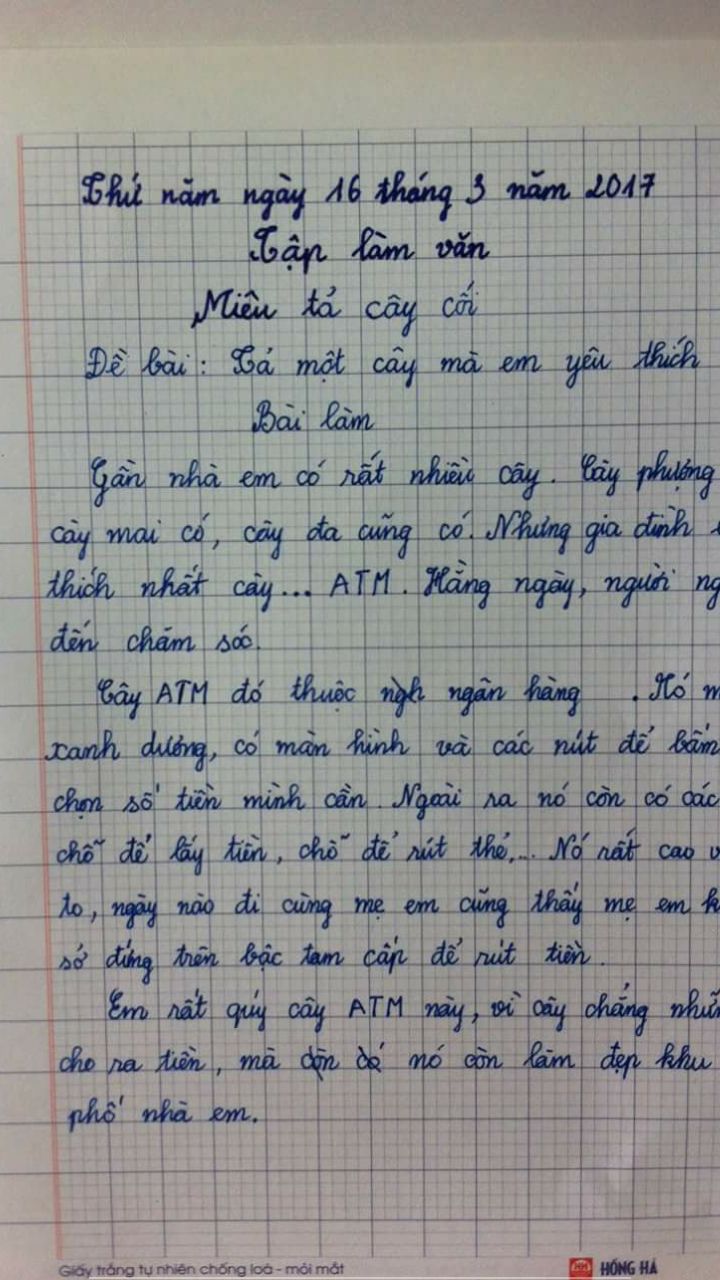 Thứ năm ngày 16 tháng 3 năm 2017
Tập làm văn
Miêu tả cây cối
Đề bài: Tả một cây mà em yêu thích
Bài làm
Gần nhà em có rất nhiều cây. Cây phượng
cây mai có, cây đa cũng có. Nhưng gia đình
thích nhất cây... ATM. Hằng ngày, người
đến chăm sóc.
Cây ATM đó thuộc ngân hàng . Nó
xanh dương, có màn hình và các nút để bấm
chọn số tiền mình cần. Ngoài ra nó còn có các
chỗ để lấy tiền, chỗ để rút thẻ,... Nó rất cao
to, ngày nào đi cùng mẹ em cũng thấy mẹ em
sở đứng trên bậc tam cấp để rút tiền.
Em rất quý cây ATM này, vì cây chẳng
cho ra tiền, mà nó còn làm đẹp khu
phố nhà em.
Giấy trắng tự nhiên chống loá - mỏi mắt
HH HỒNG HÀ